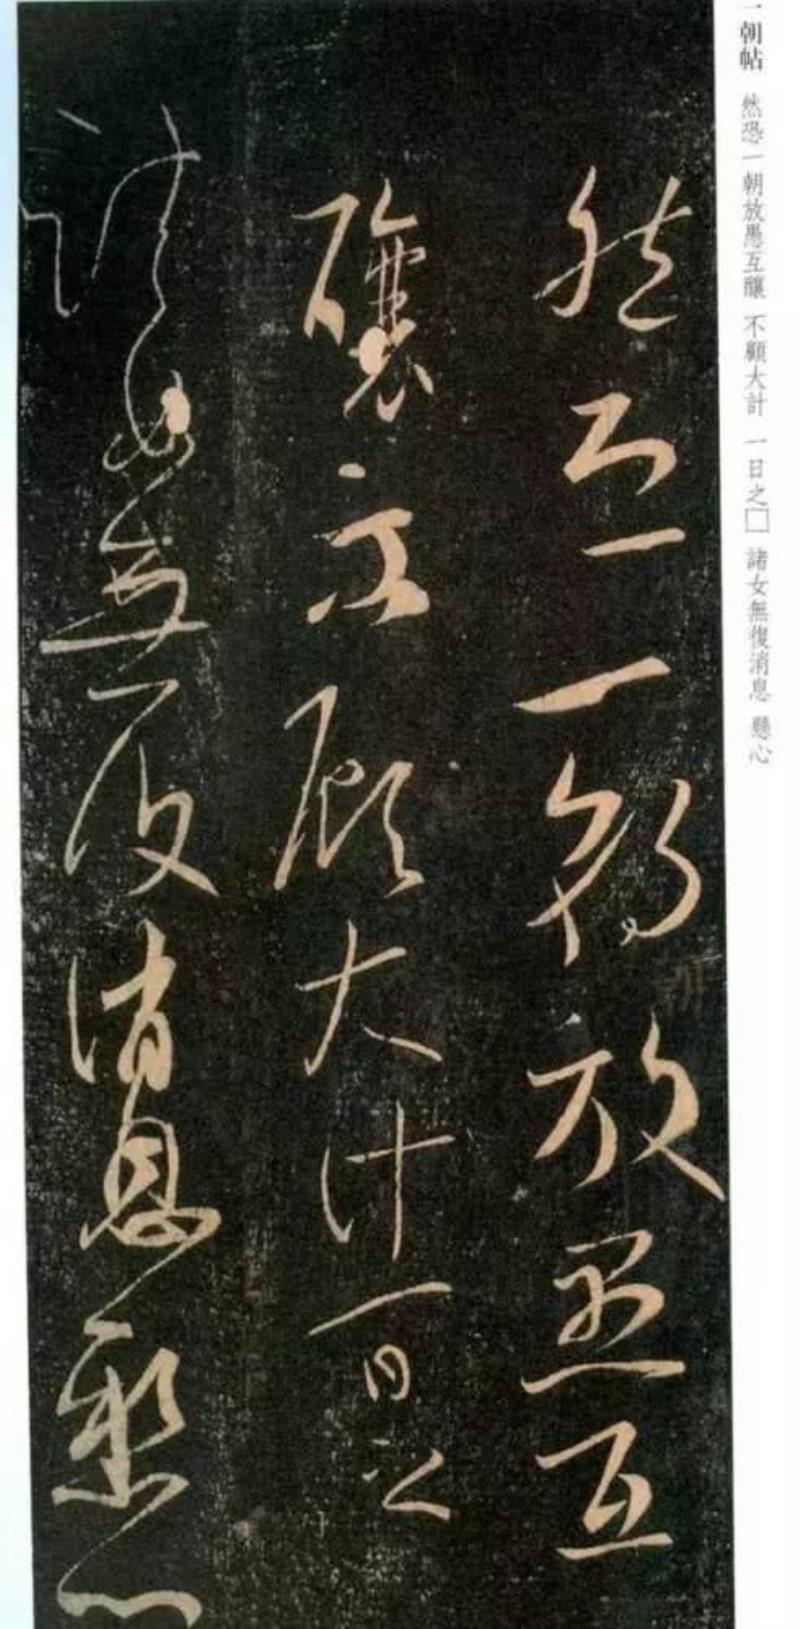 一朝帖 然恐一朝放愚互釀 不顧大計 一日之□ 諸女無復消息 懸心
然恐一朝放愚互
釀不顧大計一日之
諸女無復消息懸心